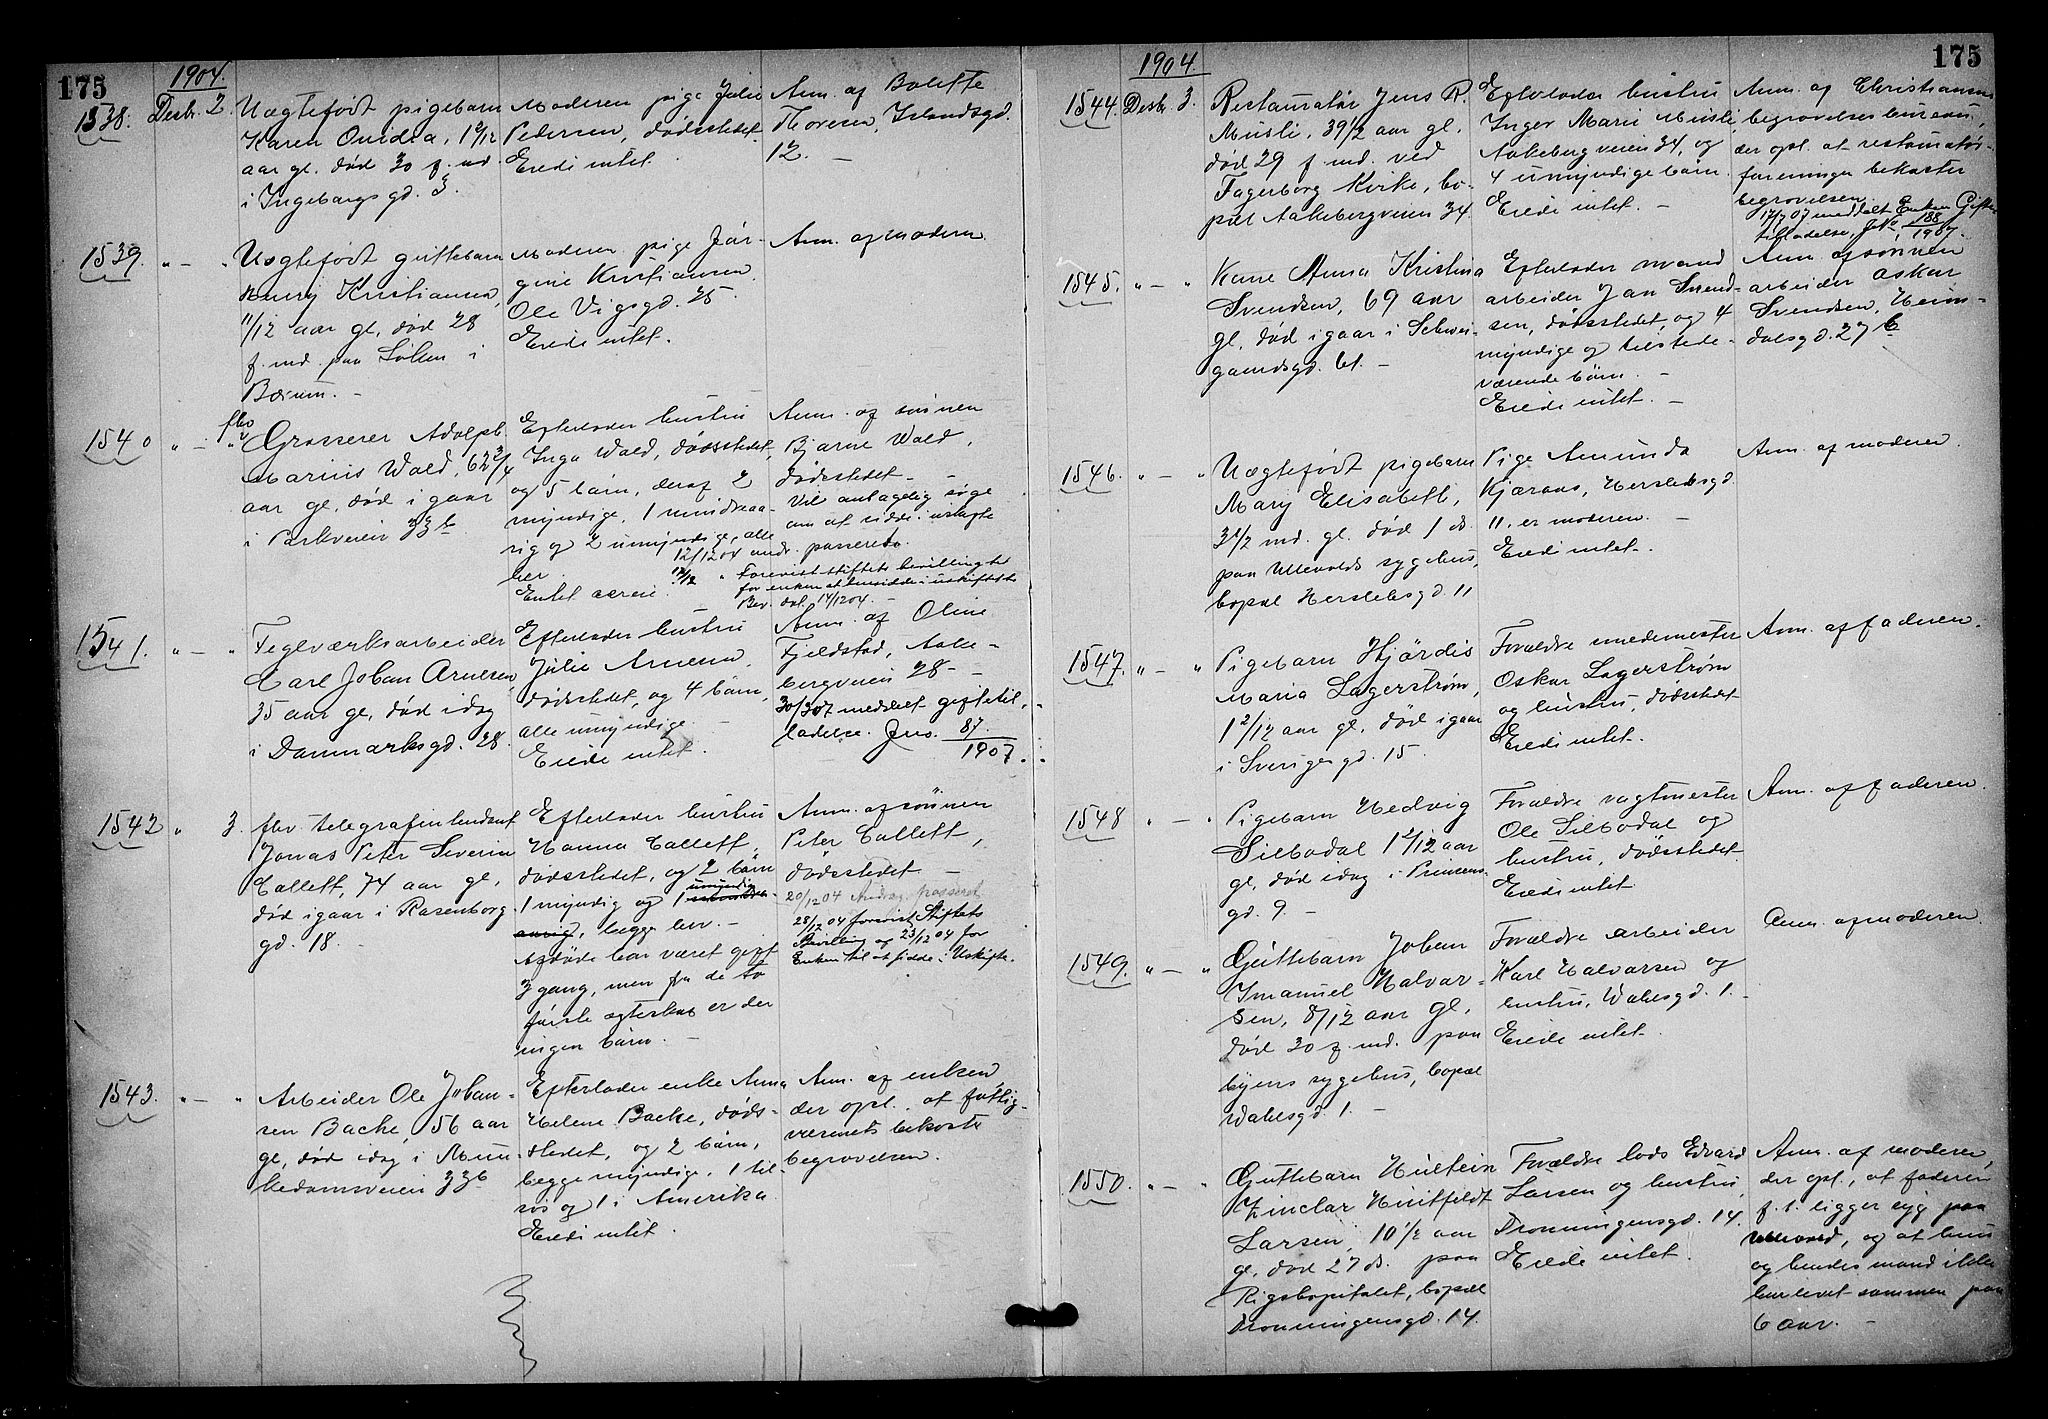 175
1904.
1538.
Desbr. 2.
Uægtefødt pigebarn
Karen Ouidia, 1 9/12
aar gl. død 30 f. md.
i Ingeborgsgd. 3.
Moderen pige Julie
Pedersen, dødsstedet.
Eiede intet.
Anm. af Bolette
Thoresen, Islandsgd.
12. —
1539. " — "
Uægtefødt guttebarn
Henry Kristiansen,
11/12 aar gl. død 28
f. md. paa Løken i
Bærum. —
Moderen pige Jør-
gine Kristiansen
Ole Vigsgd. 25.
Eiede intet.
Anm. af moderen
1540 " — "
fhv
Grosserer Adolph
Marius Wald, 62 3/4
aar gl, død igaar
i Parkveien 33 b
Efterlader hustru
Inga Wald, dødsstedet,
og 5 børn, deraf 2
myndige, 1 mindreaa-
rig og 2 umyndige, alle
her.
Enket aereie.
Anm. af sønnen
Bjarne Wald,
dødsstedet —
Vil antagelig søge
om at sidde i uskifte
12/12 04 andr. passeret.
17/12 " Forevist stiftets bevilling
for enken at hensidde i uskiftet
Bev. dat. 14/12 04. —
1541. " — "
Teglværksarbeider
Carl Johan Arnesen
35 aar gl, død idag
i Danmarksgd. 28.
Efterlader hustru
Julie Arnesen,
dødsstedet, og 4 børn,
alle umyndige. —
Eiede intet.
Anm. af Oline
Fjeldstad, Aake-
bergveien 28 —
30/3 07 meddelt giftetil-
ladelse. Jno. 87/1907.
1542 " 3.
fhv. telegrafintendant
Jonas Peter Severin
Collett, 74 aar gl,
død igaar i Rosenborg-
gd. 18. —
Efterlader hustru
Hanna Collett,
dødsstedet, og 2 børn
umyndig
1 myndig og 1 mindre-
aarig, begge her. —
Afdøde har været gift
3 gang, men fra de to
første ægteskab er der
ingen børn. —
Anm. af sønnen
Peter Collett,
dødsstedet —
20/12 04 Andrag. passeret
28/12 04 forevist Stiftets
Bevilling af 23/12 04 for
Enken til at sidde i Uskifte.
1543. " — "
Arbeider Ole Johan-
sen Backe, 56 aar
gl, død idag i Mun-
kedamsveien 33b
Efterlader enke Anna
Helene Backe, døds-
stedet, og 2 børn,
begge myndige, 1 til-
søs og 1 i Amerika
Eiede intet.
Anm. af enken
der opl., at fattig-
væsenet bekoster
begravelsen.
175
1904.
1544. Desbr. 3.
Restauratør Jens R.
Musli, 39 1/2 aar gl.
død 29 f. md. ved
Fagerborg Kirke, bo-
pæl Aakebergveien 34
Efterlader hustru
Inger Marie Musli,
Aakebergveien 34, og
4 umyndige børn.
Eiede intet. —
Anm. af Christiansens
begravelsesbureau,
der opl. at restauratør-
foreningen bekoster
begravelsen.
17/7 07 meddelt Enken Gifte-
tilladelse, JNo. 188/1907.
1545. " — "
Kone Anna Kristina
Svendsen, 69 aar
gl, død igaar i Schwei-
gaardsgd. 61. —
Efterlader mand
arbeider Jan Svend-
sen, dødsstedet, og 4
myndige og tilstede-
værende børn. —
Eiede intet. —
Anm. af sønnen
arbeider Oskar
Svendsen, Heim-
dalsgd. 27 b
1546. " — "
Uægtefødt pigebarn
Mary Elisabeth,
3 1/2 md. gl. død 1 ds.
paa Ullevolds sygehus,
bopæl Herslebsgd. 11
Pige Amunda
Kjæraas, Herslebsgd.
11, er moderen. —
Eiede intet.
Anm. af moderen.
1547. " — "
Pigebarn Hjørdis
Maria Lagerstrøm,
1 2/12 aar gl, død igaar
i Sverigesgd. 15.
Forældre smedemester
Oskar Lagerstrøm
og hustru, dødsstedet
Eiede intet.
Anm. af faderen.
1548 " — "
Pigebarn Hedvig
Silbodal 1 2/12 aar
gl, død idag i Prinsens-
gd. 9. —
Forældre vagtmester
Ole Silbodal og
hustru, dødsstedet.
Eiede intet
Anm. af faderen.
1549. " — "
Guttebarn Johan
Imanuel Halvor-
sen, 8/12 aar gl,
død 30 f. md. paa
byens sygehus, bopæl
Wahlsgd. 1. —
Forældre arbeider
Karl Halvorsen og
hustru, Wahlsgd. 1. —
Eiede intet.
Anm. af moderen
1550. " — "
Guttebarn
Zinclar Huitfeldt
Larsen, 10 1/2 aar
gl, død 27 ds. paa
Rigshospitalet, bopæl
Dronningensgd. 14.
Forældre lods Edvard
Larsen og hustru,
Dronningensgd. 14.
Eiede intet.
Anm. af moderen,
der opl., at faderen
f. t. ligger syg paa
Ullevold, og at hun
og hendes mand ikke
har levet sammen paa
6 aar. —